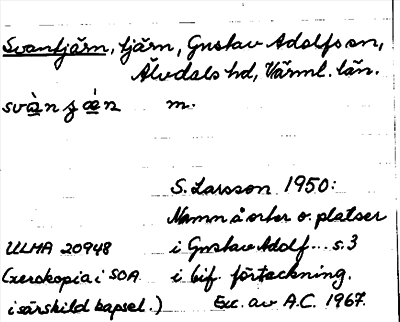 Svantjärn, tjärn, Gustav Adolfs sn,
Älvdals hd, Värml. län.
svàn ʒ ǽn m.
S. Larsson 1950:
Namn å orter o. platser
ULMA 20948 i Gustav Adolf... s. 3
(xerokopia i SOA i bif. förteckning.
i särskild kapsel.) Exc. av A.C. 1967.